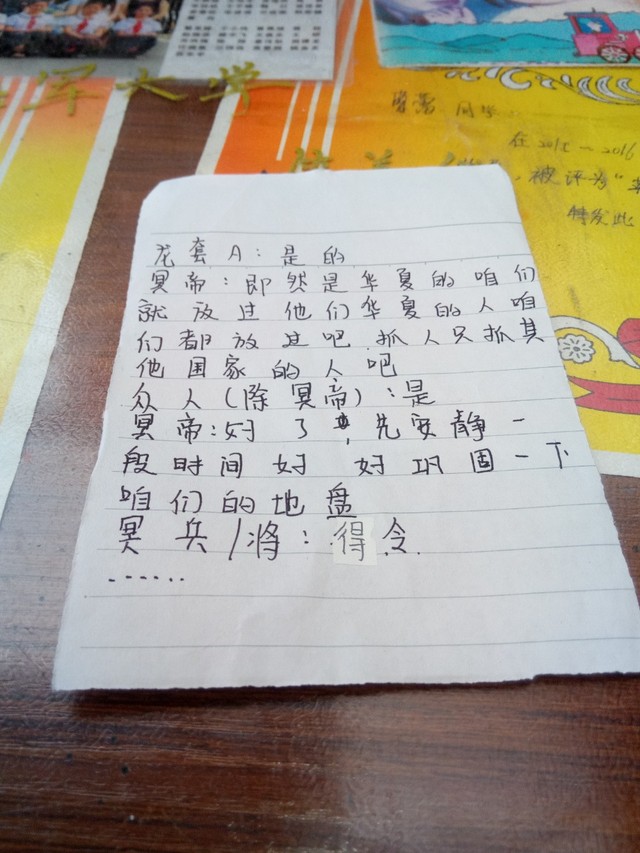 在2015-2016
被评为"
特发此
龙套A:是的
冥帝:即然是华夏的咱们
就放过他们华夏的人咱
们都放过吧.抓人只抓其
他国家的人吧
众人(除冥帝):是
冥帝:好了,先安静一
段时间好 好巩固一下
咱们的地盘
冥兵/将:得令.
......